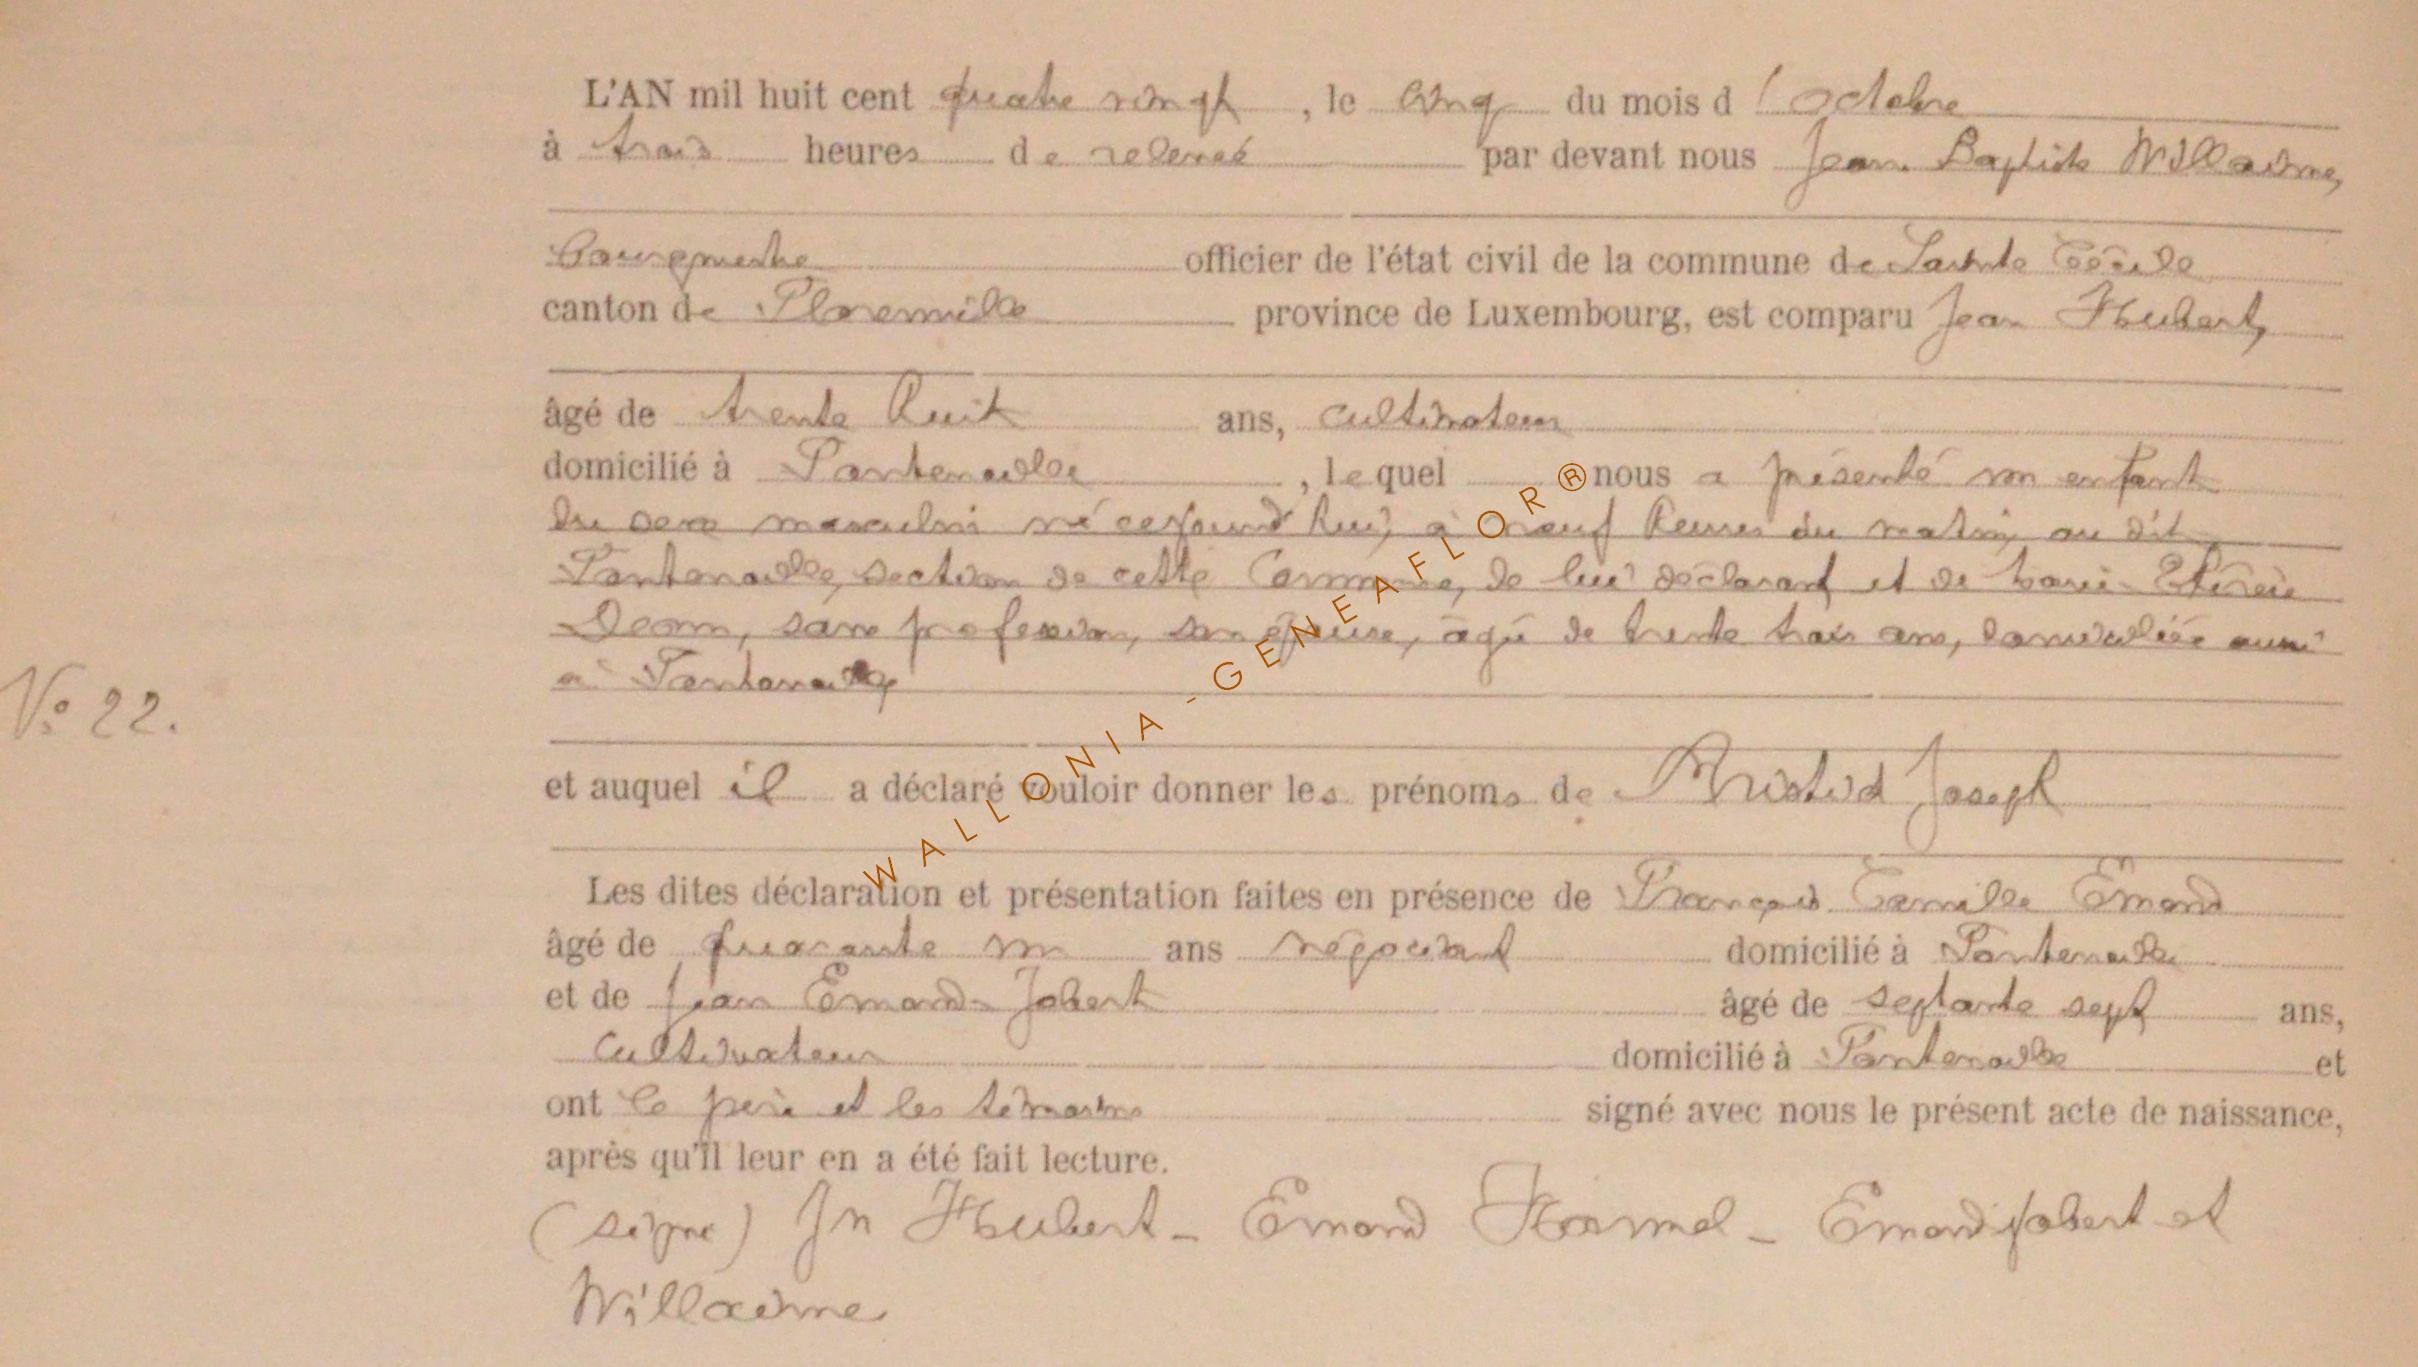 L'AN mil huit cent quatre vingt, le cinq du mois d'octobre
à trois heures de relevée par devant nous Jean Baptiste Willaime,
Bourgmestre officier de l'état civil de la commune de Sainte Cécile
canton de Florenville province de Luxembourg, est comparu Jean Hubert,
âgé de trente huit ans, cultivateur
domicilié à Fontenoille, lequel nous a présenté un enfant
du sexe masculin né cejourd'hui, à neuf heures du matin, au dit
Fontenoille, section de cette Commune, de lui déclarant et de Marie
sans profession, son épouse, âgée de trente trois ans, domiciliée aussi
à Fontenoille
N° 22.
et auquel il a déclaré vouloir donner les prénoms de Aristid Joseph
Les dites déclaration et présentation faites en présence de François Camille Emond
âgé de quarante un ans négociant domicilié à Fontenoille
et de Jean Emond-Jobert âgé de septante sept ans,
cultivateur domicilié à Fontenoille et
ont le père et les témoins signé avec nous le présent acte de naissance,
après qu'il leur en a été fait lecture.
(signé) Jn Hubert - Emond Hormel - Emond Jobert et
Willaime
WALLONIA-GENEAFLOR®